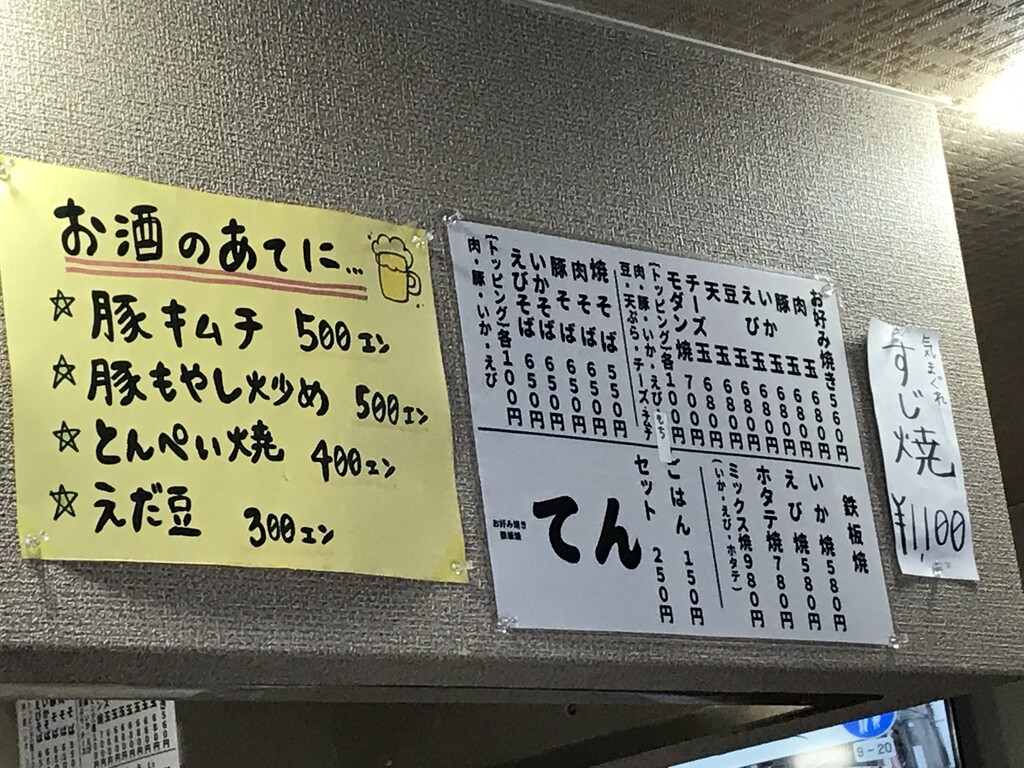 お酒のあてに…
☆ 豚キムチ 500エン
☆ 豚もやし炒め 500エン
☆ とんぺい焼 400エン
☆ えだ豆 300エン
お好み焼き560円
肉玉680円
豚玉680円
いか玉680円
えび玉680円
豆玉680円
天玉680円
チーズ玉680円
モダン焼700円
(トッピング)各100円
肉・豚・いか・えび・もち
豆・天ぷら・チーズ・キムチ
焼そば550円
肉そば650円
豚そば650円
いかそば650円
えびそば650円
(トッピング)各100円
肉・豚・いか・えび
鉄板焼
いか焼580円
えび焼580円
ホタテ焼780円
ミックス焼980円
(いか・えび・ホタテ)
ごはん150円
セット250円
お好み焼き
鉄板焼
てん
気まぐれ
すじ焼
¥1,100
9-20